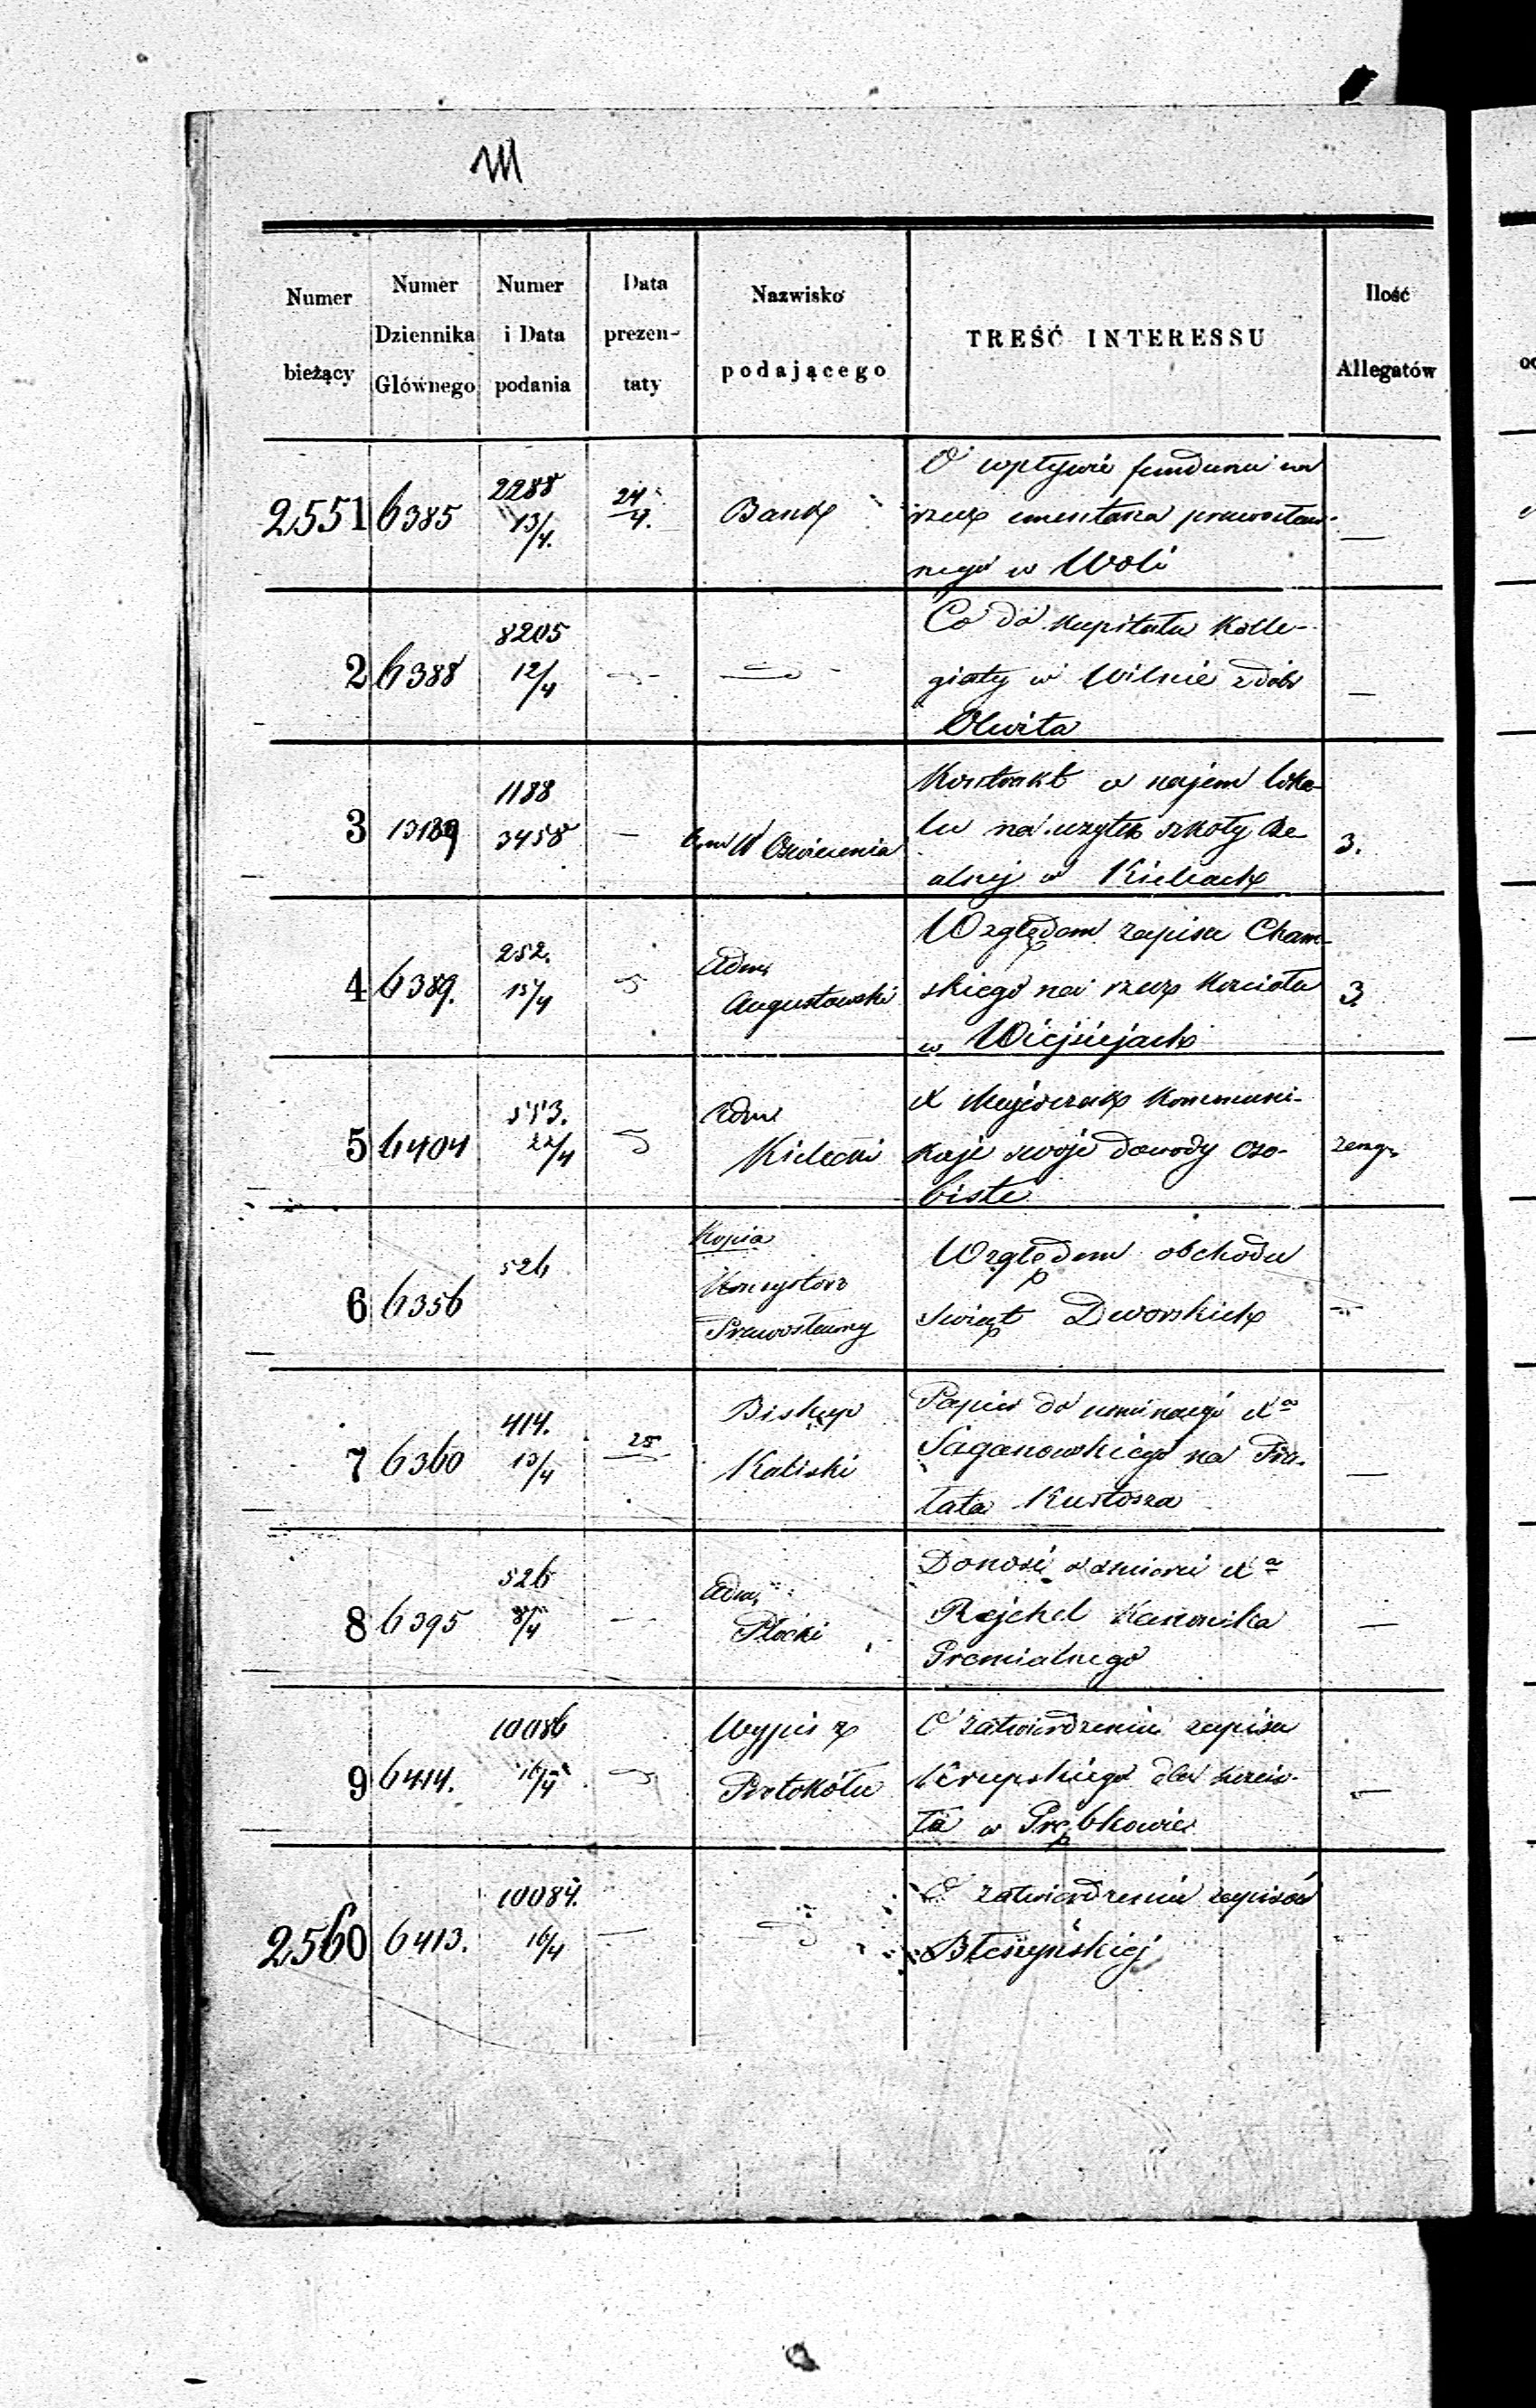 M
Numer bieżący
Numer Dziennika Głównego
Numer i Data podania
Data prezen- taty
Nazwisko podającego
TREŚĆ INTERESSU
Ilość Allegatów
2551 6385 2288 13/4. 24/4. Bank
O wpływie funduszu na
rzecz cmentarza prawosław-
nego w Woli —
2 6388 8205 12/4 — —
Co do kapitału Kolle-
giaty w Wilnie z dóbr
Olwita —
3 13189 1188 3458 — Oświecenia
Kontrakt o najem loka-
lu na użytek szkoły Re
alnej w Kielcach 3.
4 6389. 252. 15/4 Adm. Augustowski
Względem zapisu Cham-
skiego na rzecz Kościoła
w Wiejsiejach 3
5 6404 553. 22/4 Adm Kielecki
X Majewczak Kommuni-
kuje swoje dowody oso-
biste
6 6356 526 Kopia Konsystorz Prawosławny
Względem obchodu
Świąt Dworskich
7 6360 414. 13/4 25 Biskup Kaliski
Papier do nominacyi Xa
Saganowskiego na Pra-
łata Kustosza —
8 6395 526 8/4 — Adm. Płocki
Donosi o śmierci Xa
Rejchel Kanonika
Gremialnego —
9 6414. 10086 16/4 Wypis z Protokółu
O zatwierdzeniu zapisu
Krupskiego dla kościo-
ła w Prębkowie —
2560 6413. 10084. 16/4 —
O zatwierdzeniu zapisów
Błeszyńskiej